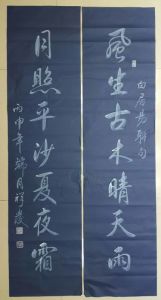 風生古木晴天雨
白居易聯句
月照平沙夏夜霜
丙申年端月祥發